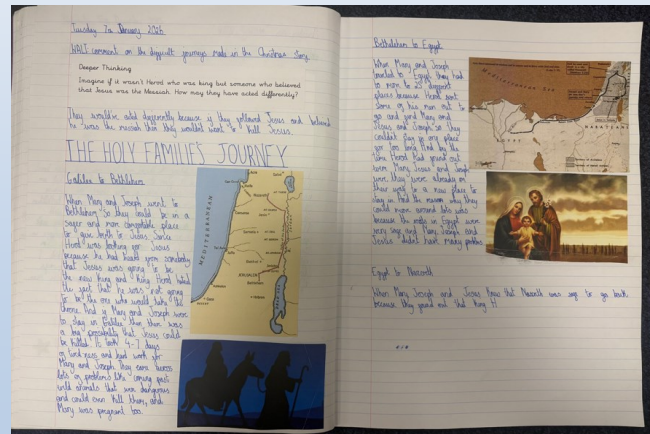 Tuesday 7th January 2025
WALT comment on the difficult journeys made in the Christmas story
Deeper Thinking
Imagine if it wasn't Herod who was king but someone who believed
that Jesus was the Messiah. How may they have acted differently?
They would've acted differently because if they followed Jesus and believed
he was the messiah then they wouldn't want to kill Jesus.
THE HOLY FAMILIES JOURNEY
Galilee to Bethlehem
When Mary and Joseph went to
Bethlehem so they could be in a
safer and more comfortable place
to give birth to Jesus. Since
Herod was looking for Jesus
because he had heard from somebody
that Jesus was going to be
the new king and King Herod hated
the fact that he was not going
to be the one who would take the
throne. And if Mary and Joseph were
to stay in Galilee then there was
a big possibility that Jesus could
be killed. It took 4-7 days
of tired ness and hard work for
Mary and Joseph. They came across
lots of problems like coming past
wild animals that were dangerous
and could even kill them, and
Mary was pregnant too.
MEDITERRANEAN
Nazareth
JERUSALEM
Bethlehem
Bethlehem to Egypt
When Mary and Joseph
travelled to Egypt they had
to move to 25 different
places because Herod sent
some of his men out to
go and find Mary and
Jesus and Joseph so they
couldn't stay in one place
for too long. And by the
time Herod had found out
were Mary, Jesus and Joseph
were, they were already on
their way to a new place to
stay in. And the reason why they
could move around lots was
because the roads in Egypt were
very large and Mary, Joseph and
Jesus didn't have many problems
Mediterranean Sea
EGYPT
NABATAEANS
Egypt to Nazareth
When Mary, Joseph and Jesus knew that Nazareth was safe to go back
because they found out that king H